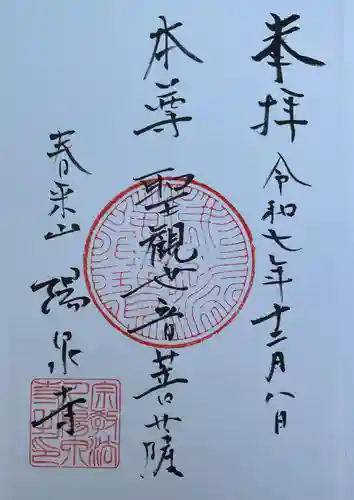 奉拝 令和七年十二月八日
本尊 聖観世音菩薩
春采山 瑞泉寺